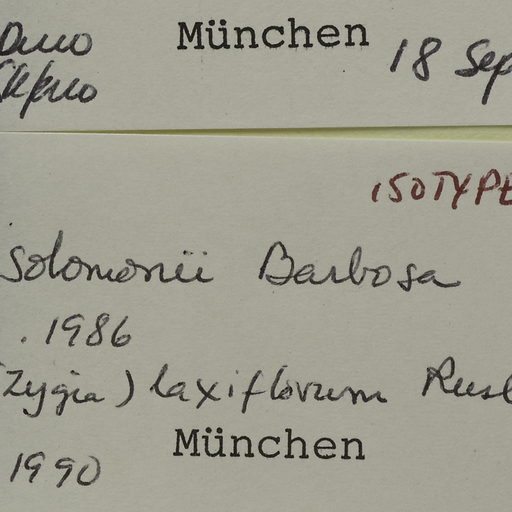 München
18 Sep
ISOTYPE
solomonii Barbosa
. 1986
(Zygia) laxiflorum Rusb
München
1990